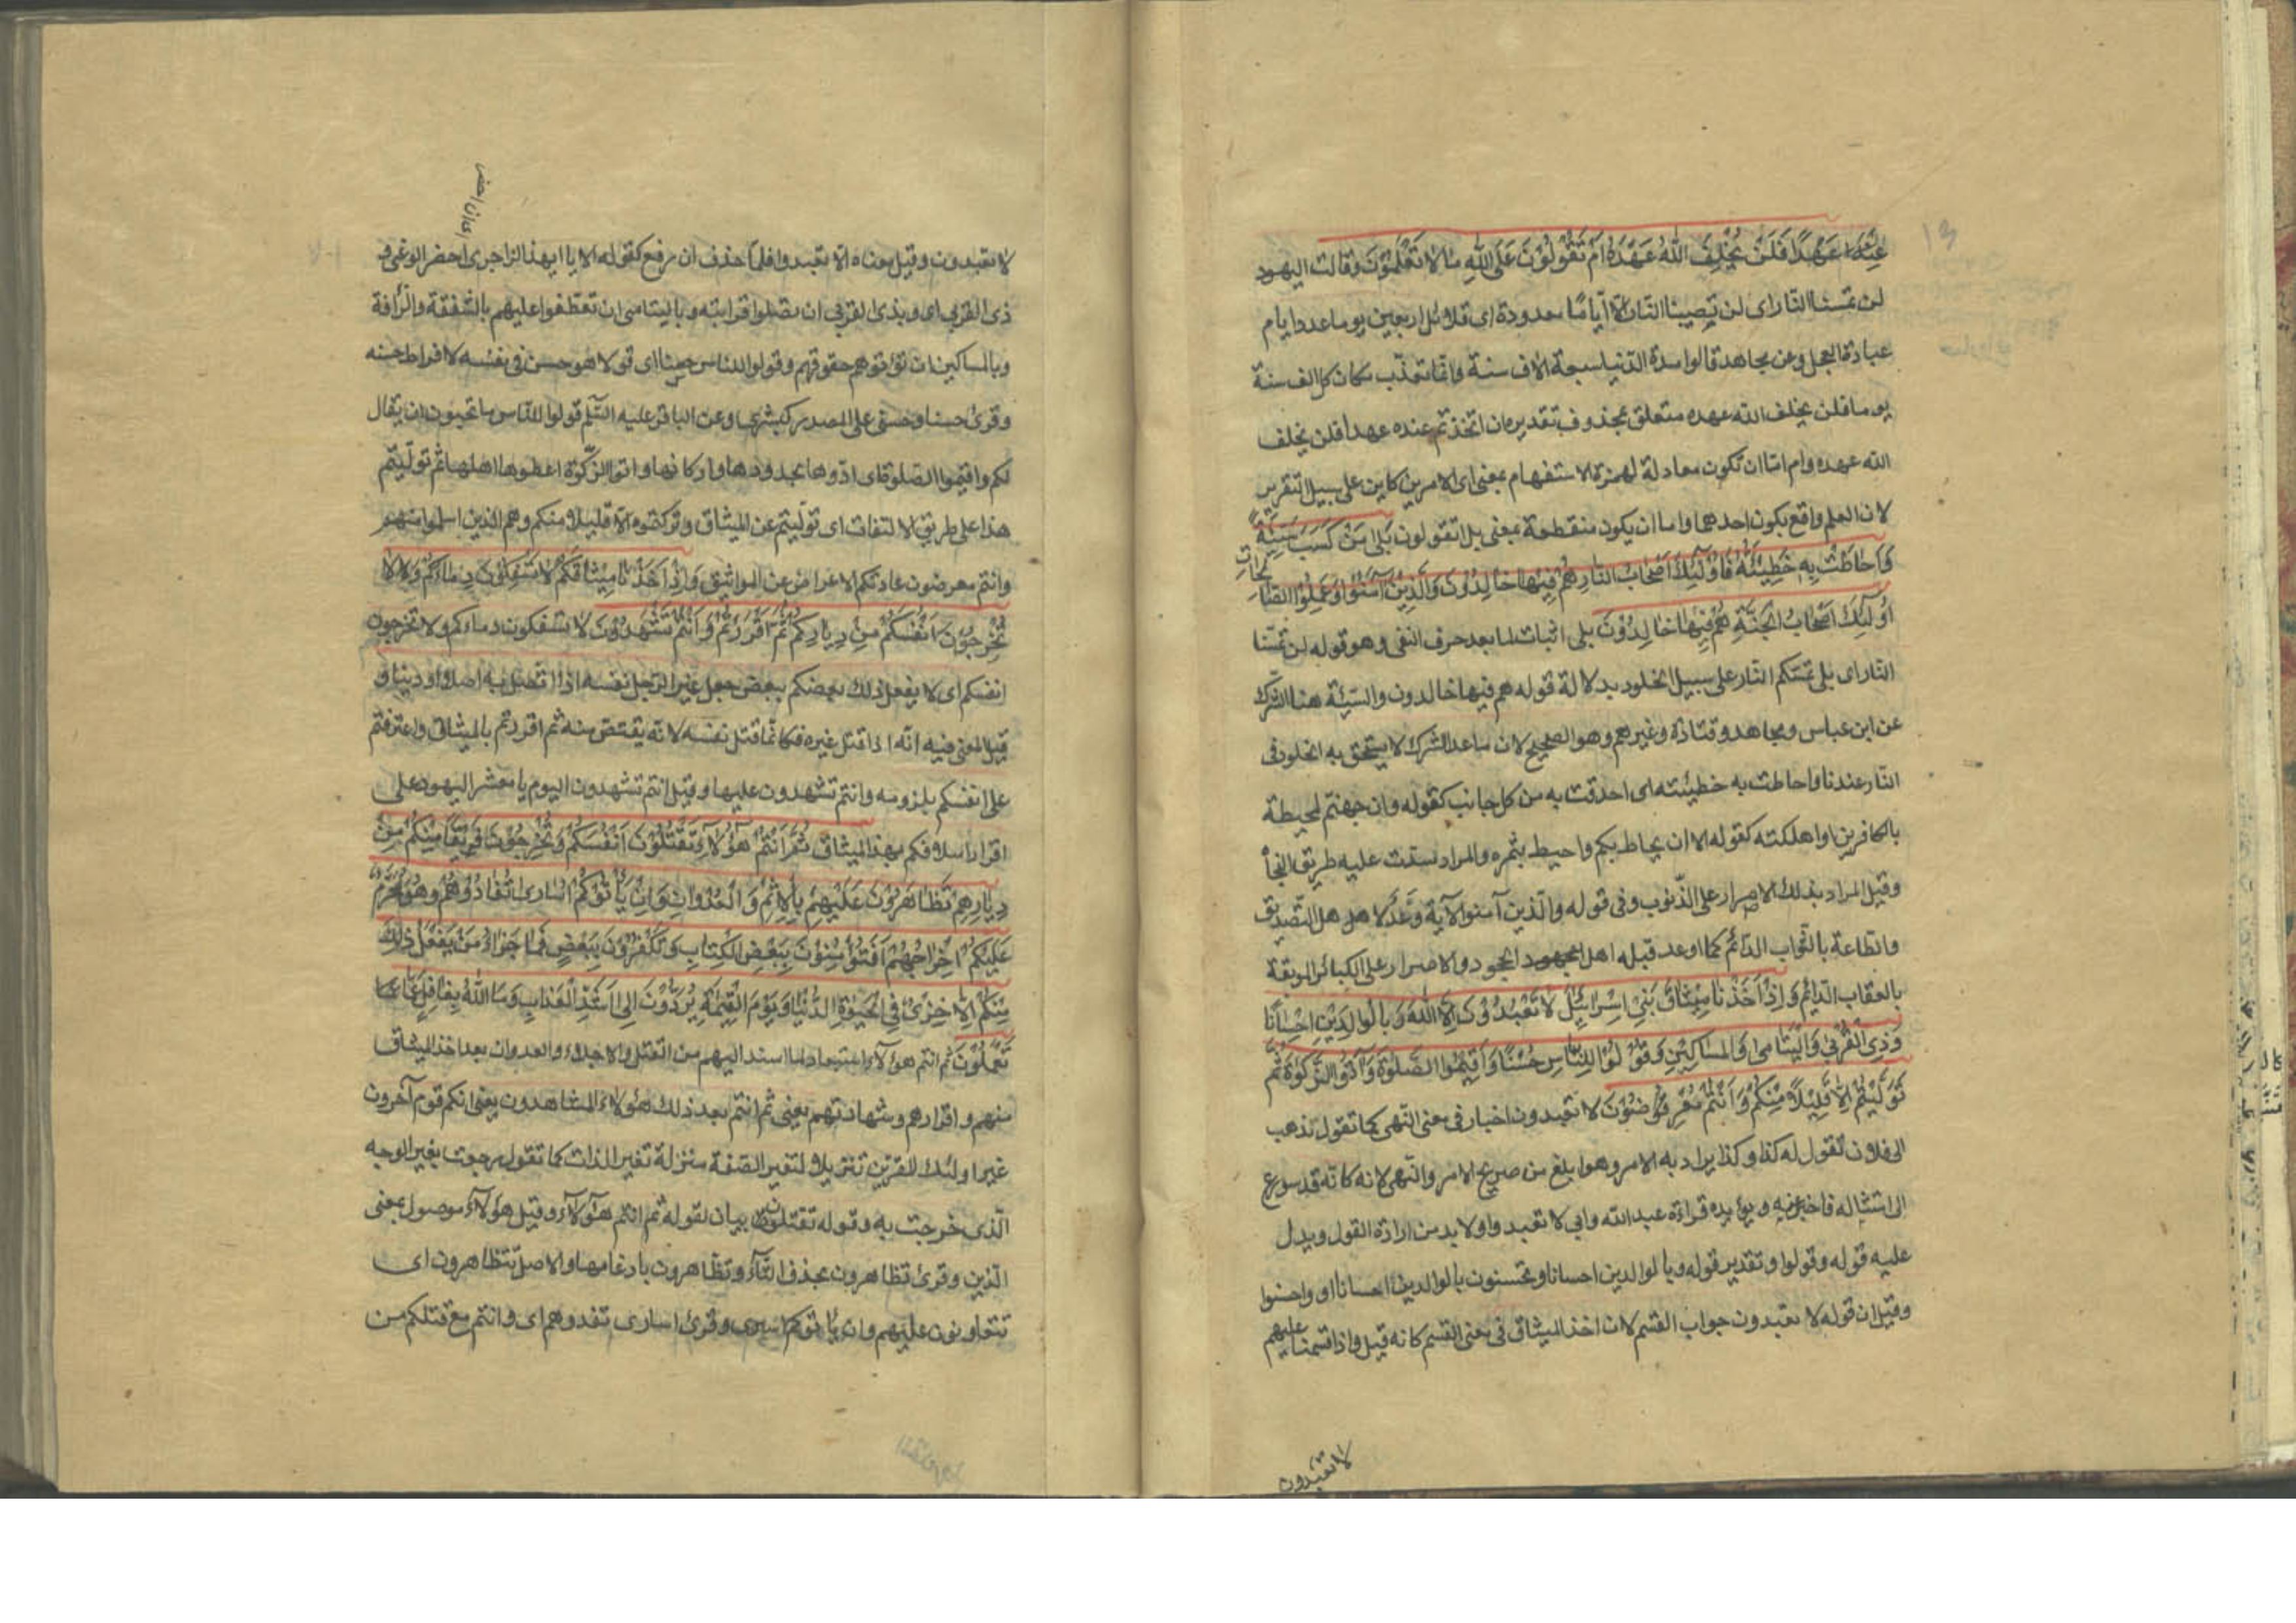 عِنْدَ اللهِ عَهْدًا فَلَنْ يُخْلِفَ اللهُ عَهْدَهُ اَمْ تَقُولُونَ عَلَى اللهِ مَا لاٰ تَعْلَمُونَ وقالت اليهود
لن تمسنا النار اى لن تصيبنا النار الّا ايّامًا معدودة اى قلائل اربعين يوما عدد ايام
عبادة العجل وعن مجاهد قالوا مدة الدنيا سبعة الاف سنة وانّما نعذّب مكان كل الف سنة
يوما فلن يخلف الله عهده متعلق بمحذوف تقديره ان اتخذتم عنده عهدا فلن يخلف
الله عهده وام امّا ان تكون معادلة لهمزة الاستفهام بمعنى اى الامرين كاين على سبيل التقرير
لان العلم واقع بكون احدهما واما ان يكون منقطعة بمعنى بل اتقولون بَلىٰ مَنْ كَسَبَ سَيِّئَةً
وَاَحٰاطَتْ بِهِ خَطِيئَتُهُ فَاُولٰئِكَ اَصْحٰابُ النّارِ هُمْ فِيهٰا خٰالِدُونَ وَالَّذِينَ آمَنُوا وَعَمِلُوا الصّٰالِحٰاتِ
اُولٰئِكَ اَصْحٰابُ الْجَنَّةِ هُمْ فِيهٰا خٰالِدُونَ بلى اثبات لما بعد حرف النفى وهو قوله لن تمسّنا
النار اى بلى تمسّكم النار على سبيل الخلود بدلالة قوله هم فيها خالدون والسيّئة هنا الشرك
عن ابن عباس ومجاهد وقتادة وغيرهم وهو الصحيح لان ماعدا الشرك لا يستحق به الخلود فى
النار عندنا واحاطت به خطيئته اى احدقت به من كل جانب كقوله وان جهنّم لمحيطة
بالكافرين او اهلكته كقوله الا ان يحاط بكم واحيط بثمره والمراد سدّت عليه طريق النجاة
وقيل المراد بذلك الاصرار على الذّنوب وفى قوله والّذين آمنوا الآية وَعْدٌ لاهل التّصديق
والطاعة بالثّواب الدّائم كما اوعد قبله اهل الجحود والاصرار على الكبائر الموبقة
بالعقاب الدّائم وَاِذْ اَخَذْنٰا مِيثٰاقَ بَنِى اِسْرٰائِيلَ لاٰ تَعْبُدُونَ اِلاَّ اللهَ وَبِالْوٰالِدَيْنِ اِحْسٰانًا
وَذِى الْقُرْبىٰ وَالْيَتٰامىٰ وَالْمَسٰاكِينِ وَقُولُوا لِلنّٰاسِ حُسْنًا وَاَقِيمُوا الصَّلوٰةَ وَآتُوا الزَّكوٰةَ ثُمَّ
تَوَلَّيْتُمْ اِلّٰا قَلِيلاً مِنْكُمْ وَاَنْتُمْ مُعْرِضُونَ لا تعبدون اخبار فى معنى النّهى كما تقول تذهب
الى فلان تقول له كذا وكذا يراد به الامر وهو ابلغ من صريح الامر والنّهى لانه كانّه قد سورع
الى امتثاله فاخبر عنه ويؤيده قراءة عبد الله وابي لا تعبدوا ولا بد من ارادة القول ويدل
عليه قوله وقولوا وتقدير قوله وبالوالدين احسانا وتحسنون بالوالدين احسانا او واحسنوا
وقيل ان قوله لا تعبدون جواب القسم لان اخذ الميثاق فى معنى القسم كانه قيل واذ اقسمنا عليهم
لا تعبدون
لا تعبدون وقيل معناه الّا تعبدوا فلمّا حذف ان رفع كقوله الا يا ايهذا الزاجرى احضر الوغى و
اى ان احضر
ذى القربى اى وبذى القربى ان تصلوا قرابته وباليتامى ان تعطفوا عليهم بالشّفقة والرّافة
وبالمساكين ان تؤتوهم حقوقهم وقولوا للناس حسنا اى قولا هو حسن فى نفسه لافراط حسنه
وقرئ حسنا وحسنى على المصدر كبشرى وعن الباقر عليه السّلم قولوا للنّاس ما تحبون ان يقال
لكم واقيموا الصلوة اى ادّوها بحدودها واركانها واتوا الزّكوة اعطوها اهلها ثم تولّيتم
هذا على طريق الالتفات اى تولّيتم عن الميثاق وتركتموه الّا قليلا منكم وهم الذين اسلموا منهم
وانتم معرضون عادتكم الاعراض عن المواثيق وَاِذْ اَخَذْنٰا مِيثٰاقَكُمْ لاٰ تَسْفِكُونَ دِمٰاءَكُمْ وَلاٰ
تُخْرِجُونَ اَنْفُسَكُمْ مِنْ دِيٰارِكُمْ ثُمَّ اَقْرَرْتُمْ وَاَنْتُمْ تَشْهَدُونَ لا تسفكون دماءكم ولا تخرجون
انفسكم اى لا يفعل ذلك بعضكم ببعض جعل غير الرّجل نفسه اذا اتصل به اصلا او دينا و
قيل المعنى فيه انّه اذا قتل غيره فكانّما قتل نفسه لانّه يقتصّ منه ثم اقررتم بالميثاق واعترفتم
على انفسكم بلزومه وانتم تشهدون عليها وقيل انتم تشهدون اليوم يا معشر اليهود على
اقرار اسلافكم بهذا الميثاق ثُمَّ اَنْتُمْ هٰؤُلاٰءِ تَقْتُلُونَ اَنْفُسَكُمْ وَتُخْرِجُونَ فَرِيقًا مِنْكُمْ مِنْ
دِيٰارِهِمْ تَظٰاهَرُونَ عَلَيْهِمْ بِالْاِثْمِ وَالْعُدْوٰانِ وَاِنْ يَأْتُوكُمْ اُسٰارىٰ تُفٰادُوهُمْ وَهُوَ مُحَرَّمٌ
عَلَيْكُمْ اِخْرٰاجُهُمْ اَفَتُؤْمِنُونَ بِبَعْضِ الْكِتٰابِ وَتَكْفُرُونَ بِبَعْضٍ فَمٰا جَزٰاءُ مَنْ يَفْعَلُ ذٰلِكَ
مِنْكُمْ اِلّٰا خِزْىٌ فِى الْحَيٰوةِ الدُّنْيٰا وَيَوْمَ الْقِيٰمَةِ يُرَدُّونَ اِلىٰ اَشَدِّ الْعَذٰابِ وَمَا اللهُ بِغٰافِلٍ عَمّٰا
تَعْمَلُونَ ثم انتم هؤلاء استبعاد لما اسند اليهم من القتل والاجلاء والعدوان بعد اخذ الميثاق
منهم واقرارهم وشهادتهم يعنى ثم انتم بعد ذلك هؤلاء المشاهدون يعنى انكم قوم آخرون
غير اولئك المقرّين تنزيلا لتغير الصّفة منزلة تغير الذات كما تقول رجعت بغير الوجه
الّذى خرجت به وقوله تقتلون بيان لقوله ثم انتم هؤلاء وقيل هؤلاء موصول بمعنى
الّذين وقرئ تظاهرون بحذف التّاء وتظّاهرون بادغامها والاصل تتظاهرون اى
تتعاونون عليهم وان ياتوكم اسرى وقرئ اسارى تفدوهم اى وانتم مع قتلكم من